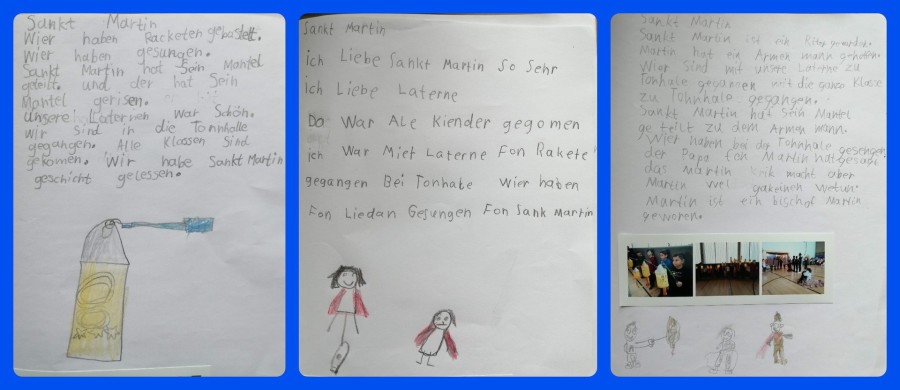 Sankt Martin
Wier haben Racketen gebastelt.
Wier haben gesungen.
Sankt Martin hat Sein Mantel
geteilt. und der hat Sein
Mantel gerisen.
Unsere Laternen War Schön.
wir sind in die Tonnhalle
gegangen. Alle Klassen Sind
gekomen. Wir habe Sankt Martin
geschicht gelessen.
Sankt Martin
ich Liebe Sankt Martin So Sehr
ich Liebe Laterne
Da War Ale Kiender gegomen
ich War Miet Laterne Fon Rakete
gegangen Bei Tonhale Wier haben
Fon Liedan Gesungen Fon Sank Martin
Sankt Martin
Sankt Martin ist ein Riter geworden.
Martin hat ein Armen mann geholfen.
Wier Sind mit unsre Laterne zu
Tonhale gegangen mit die ganze Klasse
zu Tohnhale gegangen.
Sankt Martin hat sein Mantel
ge teilt zu dem Armen mann.
Wier haben bei der Tohnhale gesengen
der Papa fon Martin hat gesagt
das Martin macht aber
Martin
Martin ist ein bischof Martin
geworen.